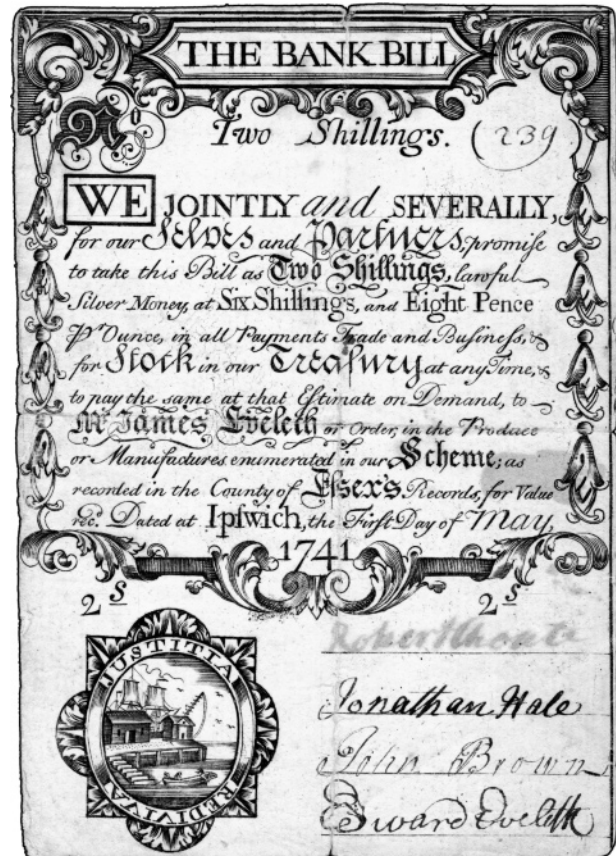 THE BANK BILL
No
Two Shillings. (239)
WE JOINTLY and SEVERALLY,
for our Selves and Partners, promise
to take this Bill as Two Shillings, lawful
Silver Money, at Six Shillings, and Eight Pence
Pr Ounce, in all Payments Trade and Business, &
for Stock in our Treasury at any Time, &
to pay the same at that Estimate on Demand, to
Mr James Eveleth or Order, in the Produce
or Manufactures enumerated in our Scheme; as
recorded in the County of Essex's Records, for Value
rec. Dated at Ipswich, the First Day of May,
1741
2 S 2 S
JUSTITIA REDIVIVA
Robert Choate
Jonathan Hale
John Brown
Edward Eveleth